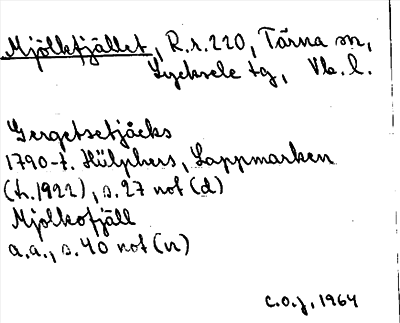 Mjölkfjället, R.r. 220, Tärna sn,
Lycksele tg, Vb. l.
Gergetsetjåcks
1790-t. Hülphers, Lappmarken
(tr. 1922), s. 27 not (d)
Mjölkofjäll
a.a., s. 40 not (n)
c.o.j, 1964